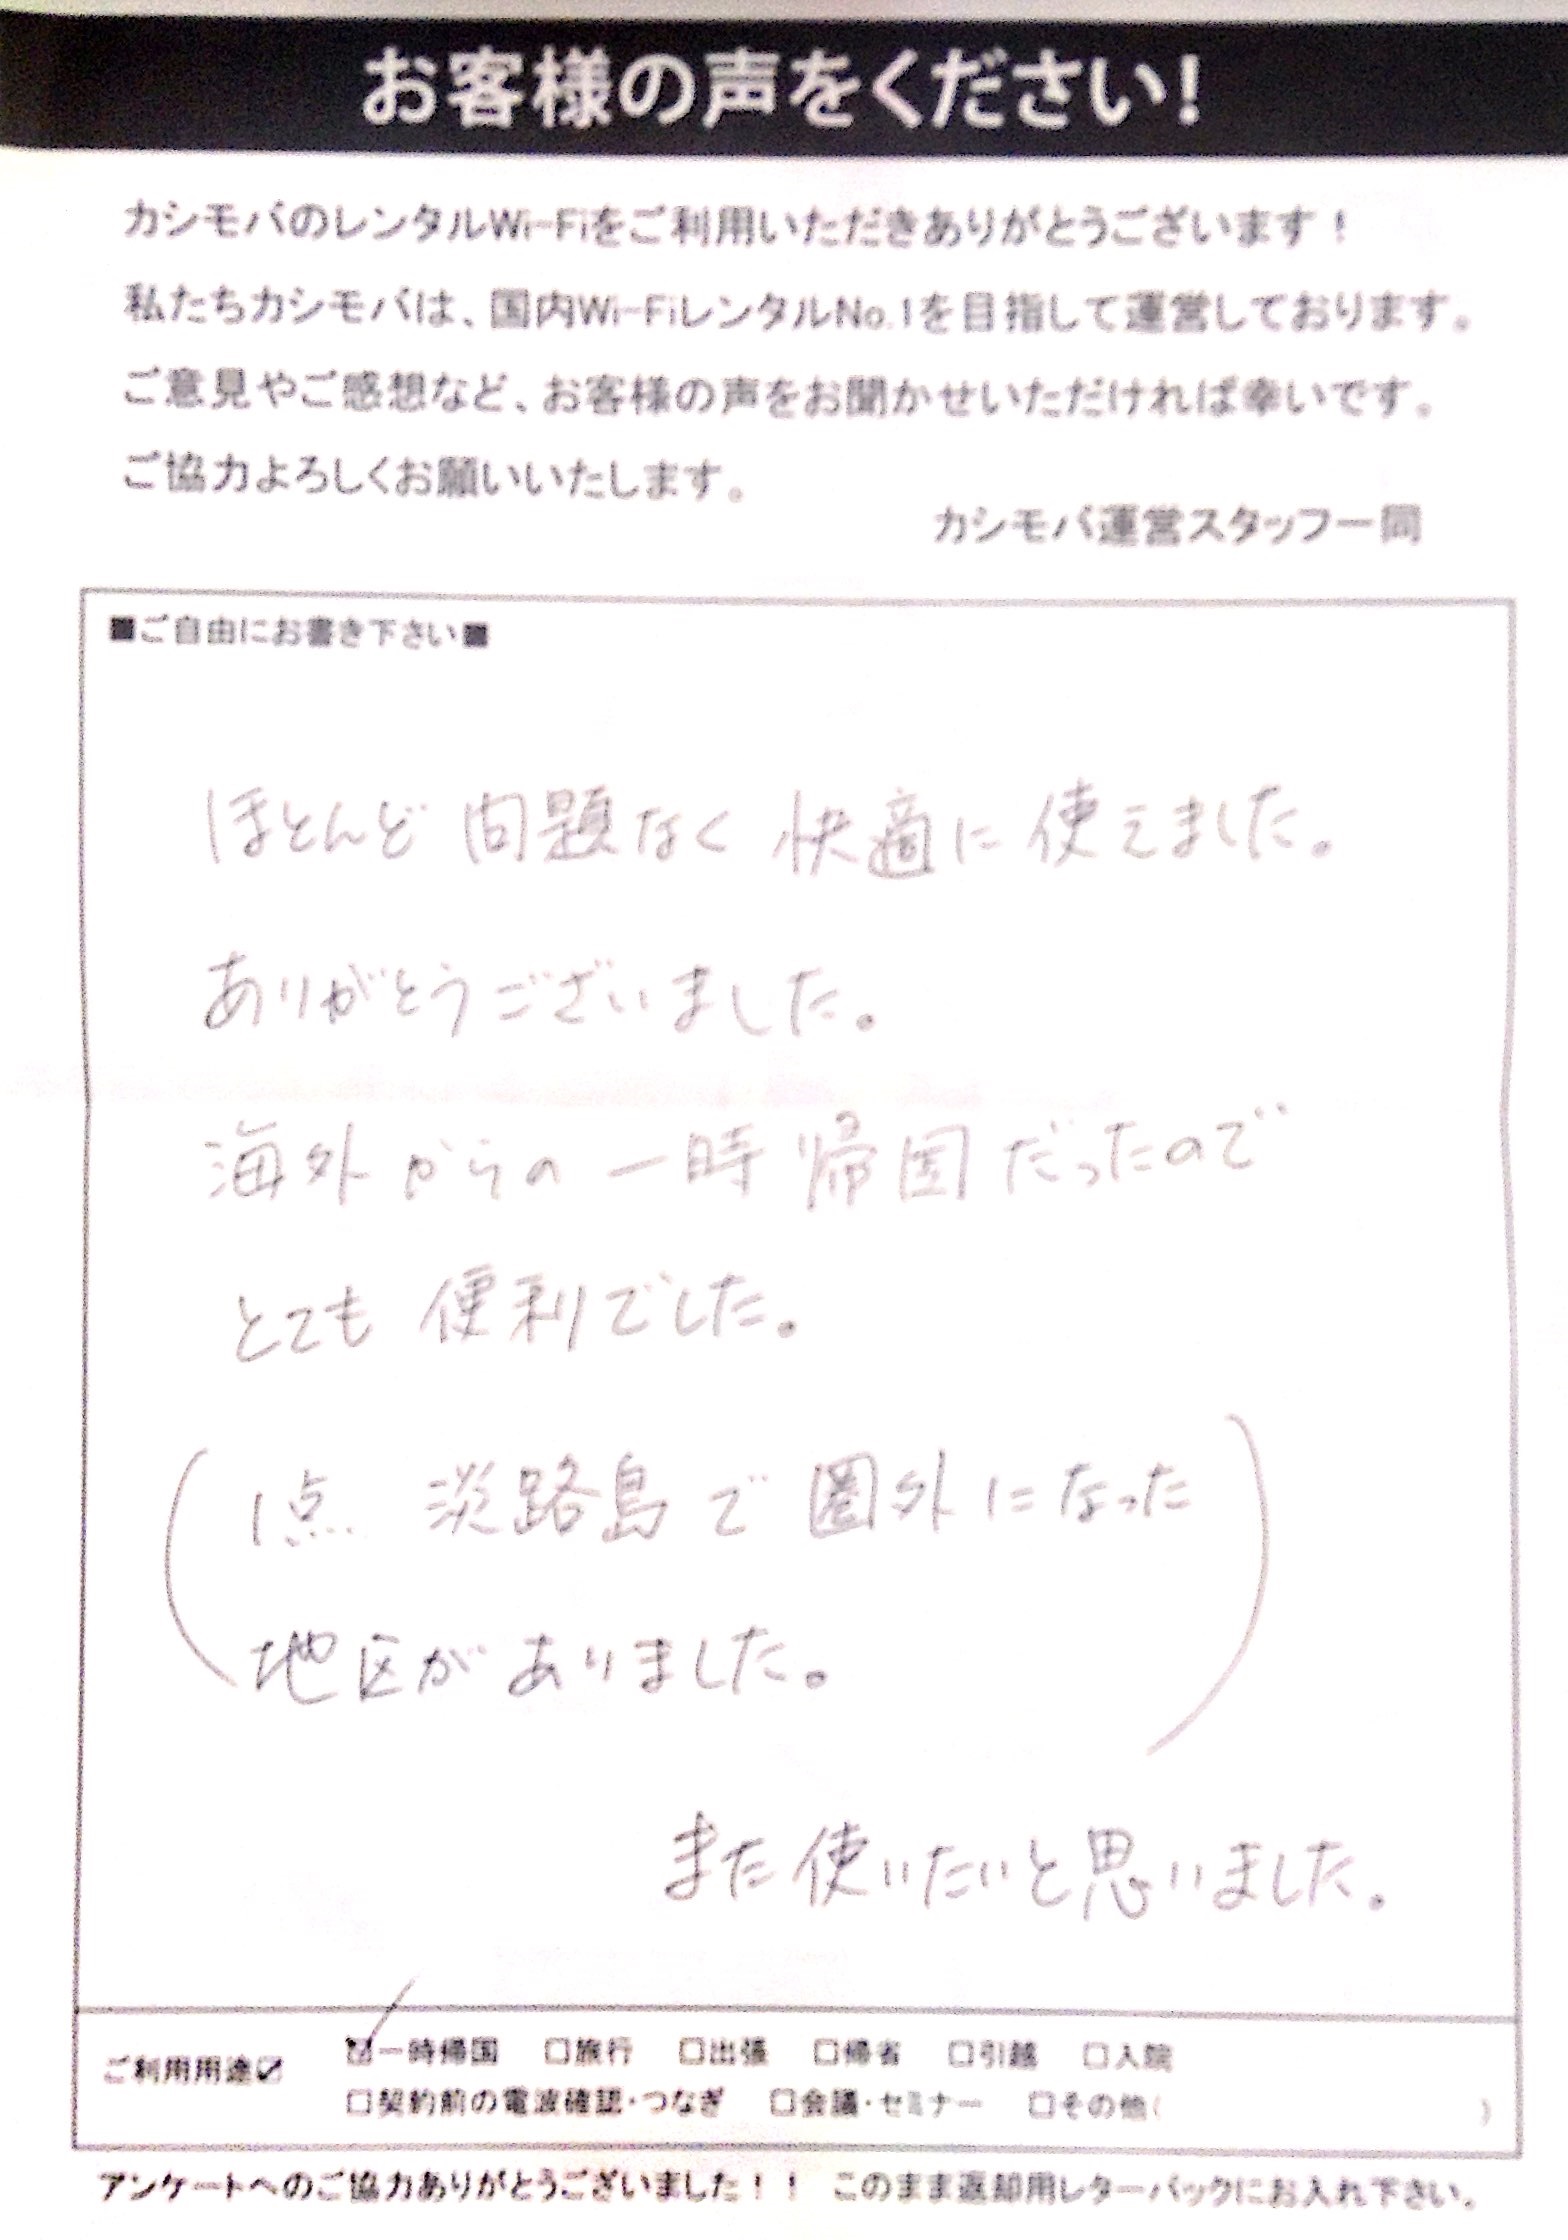 お客様の声をください!
カシモバのレンタルWi-Fiをご利用いただきありがとうございます！
私たちカシモバは、国内Wi-FiレンタルNo.1を目指して運営しております。
ご意見やご感想など、お客様の声をお聞かせいただければ幸いです。
ご協力よろしくお願いいたします。
カシモバ運営スタッフ一同
■ご自由にお書き下さい■
ほとんど問題なく快適に使えました。
ありがとうございました。
海外からの一時帰国だったので
とても便利でした。
(1点 淡路島で圏外になった
地区がありました。)
また使いたいと思いました。
ご利用用途☑ ☑一時帰国 □旅行 □出張 □帰省 □引越 □入院
□契約前の電波確認・つなぎ □会議・セミナー □その他( )
アンケートへのご協力ありがとうございました！！ このまま返却用レターパックにお入れ下さい。